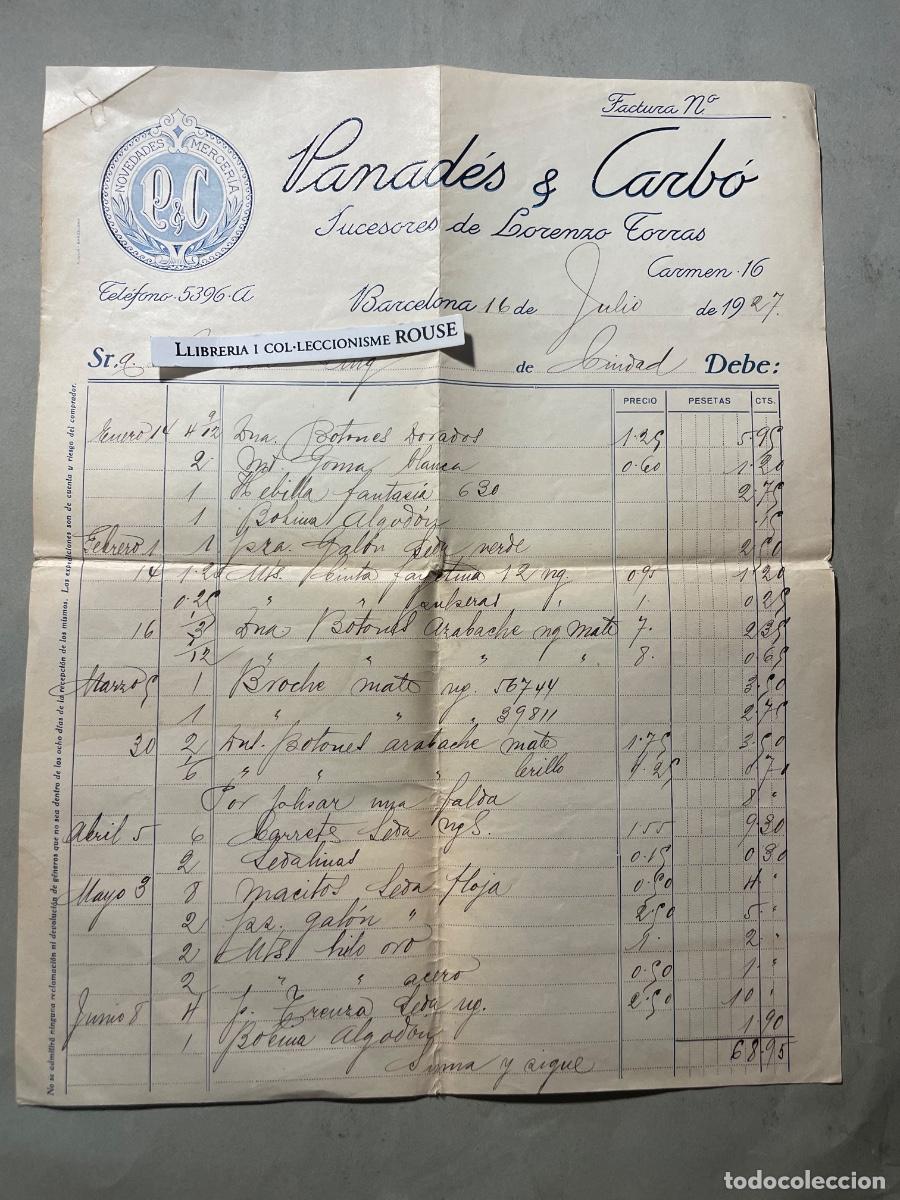 Factura Nº
NOVEDADES MERCERIA
P&C
Panadés & Carbó
Sucesores de Lorenzo Torras
Carmen·16
Teléfono·5396·A
Barcelona 16 de Julio de 1927.
LLIBRERIA I COL·LECCIONISME ROUSE
Sr. de Ciudad Debe:
PRECIO PESETAS CTS.
Enero 14 4 9/12 Dna. Botones Dorados 1.25 5.95
2 Mt. Goma blanca 0.60 1.20
1 Hebilla fantasia 630 2.75
1 Bobina Algodón .15
Febrero 1 1 pza. Galón Seda verde 2.50
14 1.25 Mts. Cinta 12 ng. 0.95 1.20
0.25 " " 1. 0.25
16 3/12 Dna Botones Azabache ng Mate 7. 2.35
1/12 " " " " 8. 0.65
Marzo 5 1 Broche mate ng. 56744 3.50
1 " " " 39811 2.75
30 2 Dns. Botones azabache mate 1.75 3.50
1/6 " " " brillo 4.25 0.70
Por plisar una falda 8 "
Abril 5 6 Carretes Seda ngS. 1.55 9.30
2 Sedalinas 0.15 0.30
Mayo 3 8 Macitos Seda floja 0.50 4 "
2 pz. galón " 2.50 5. "
2 Mts hilo oro 1. 2 "
2 " " acero 0.50 1. "
Junio 8 4 p. Trenza Seda ng. 2.50 10 "
1 Bobina Algodón 1.90
Suma y sigue 68.95
No se admitirá ninguna reclamación ni devolución de géneros que no sea dentro de los ocho días de la recepción de los mismos. Las expediciones son de cuenta y riesgo del comprador.
todocoleccion